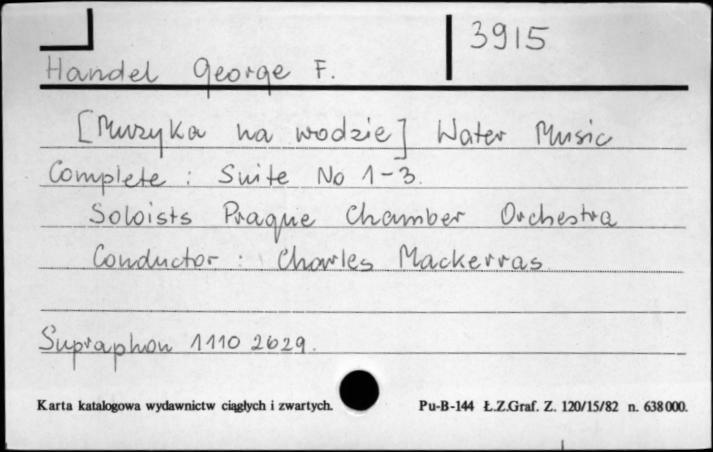 3915
Handel George F.
[Muzyka na wodzie] Water Music
Complete : Suite No 1-3.
Soloists Prague Chamber Orchestra
Conductor : Charles Mackerras
Supraphon 1110 2629.
Karta katalogowa wydawnictw ciągłych i zwartych. Pu-B-144 Ł.Z.Graf. Z. 120/15/82 n. 638000.